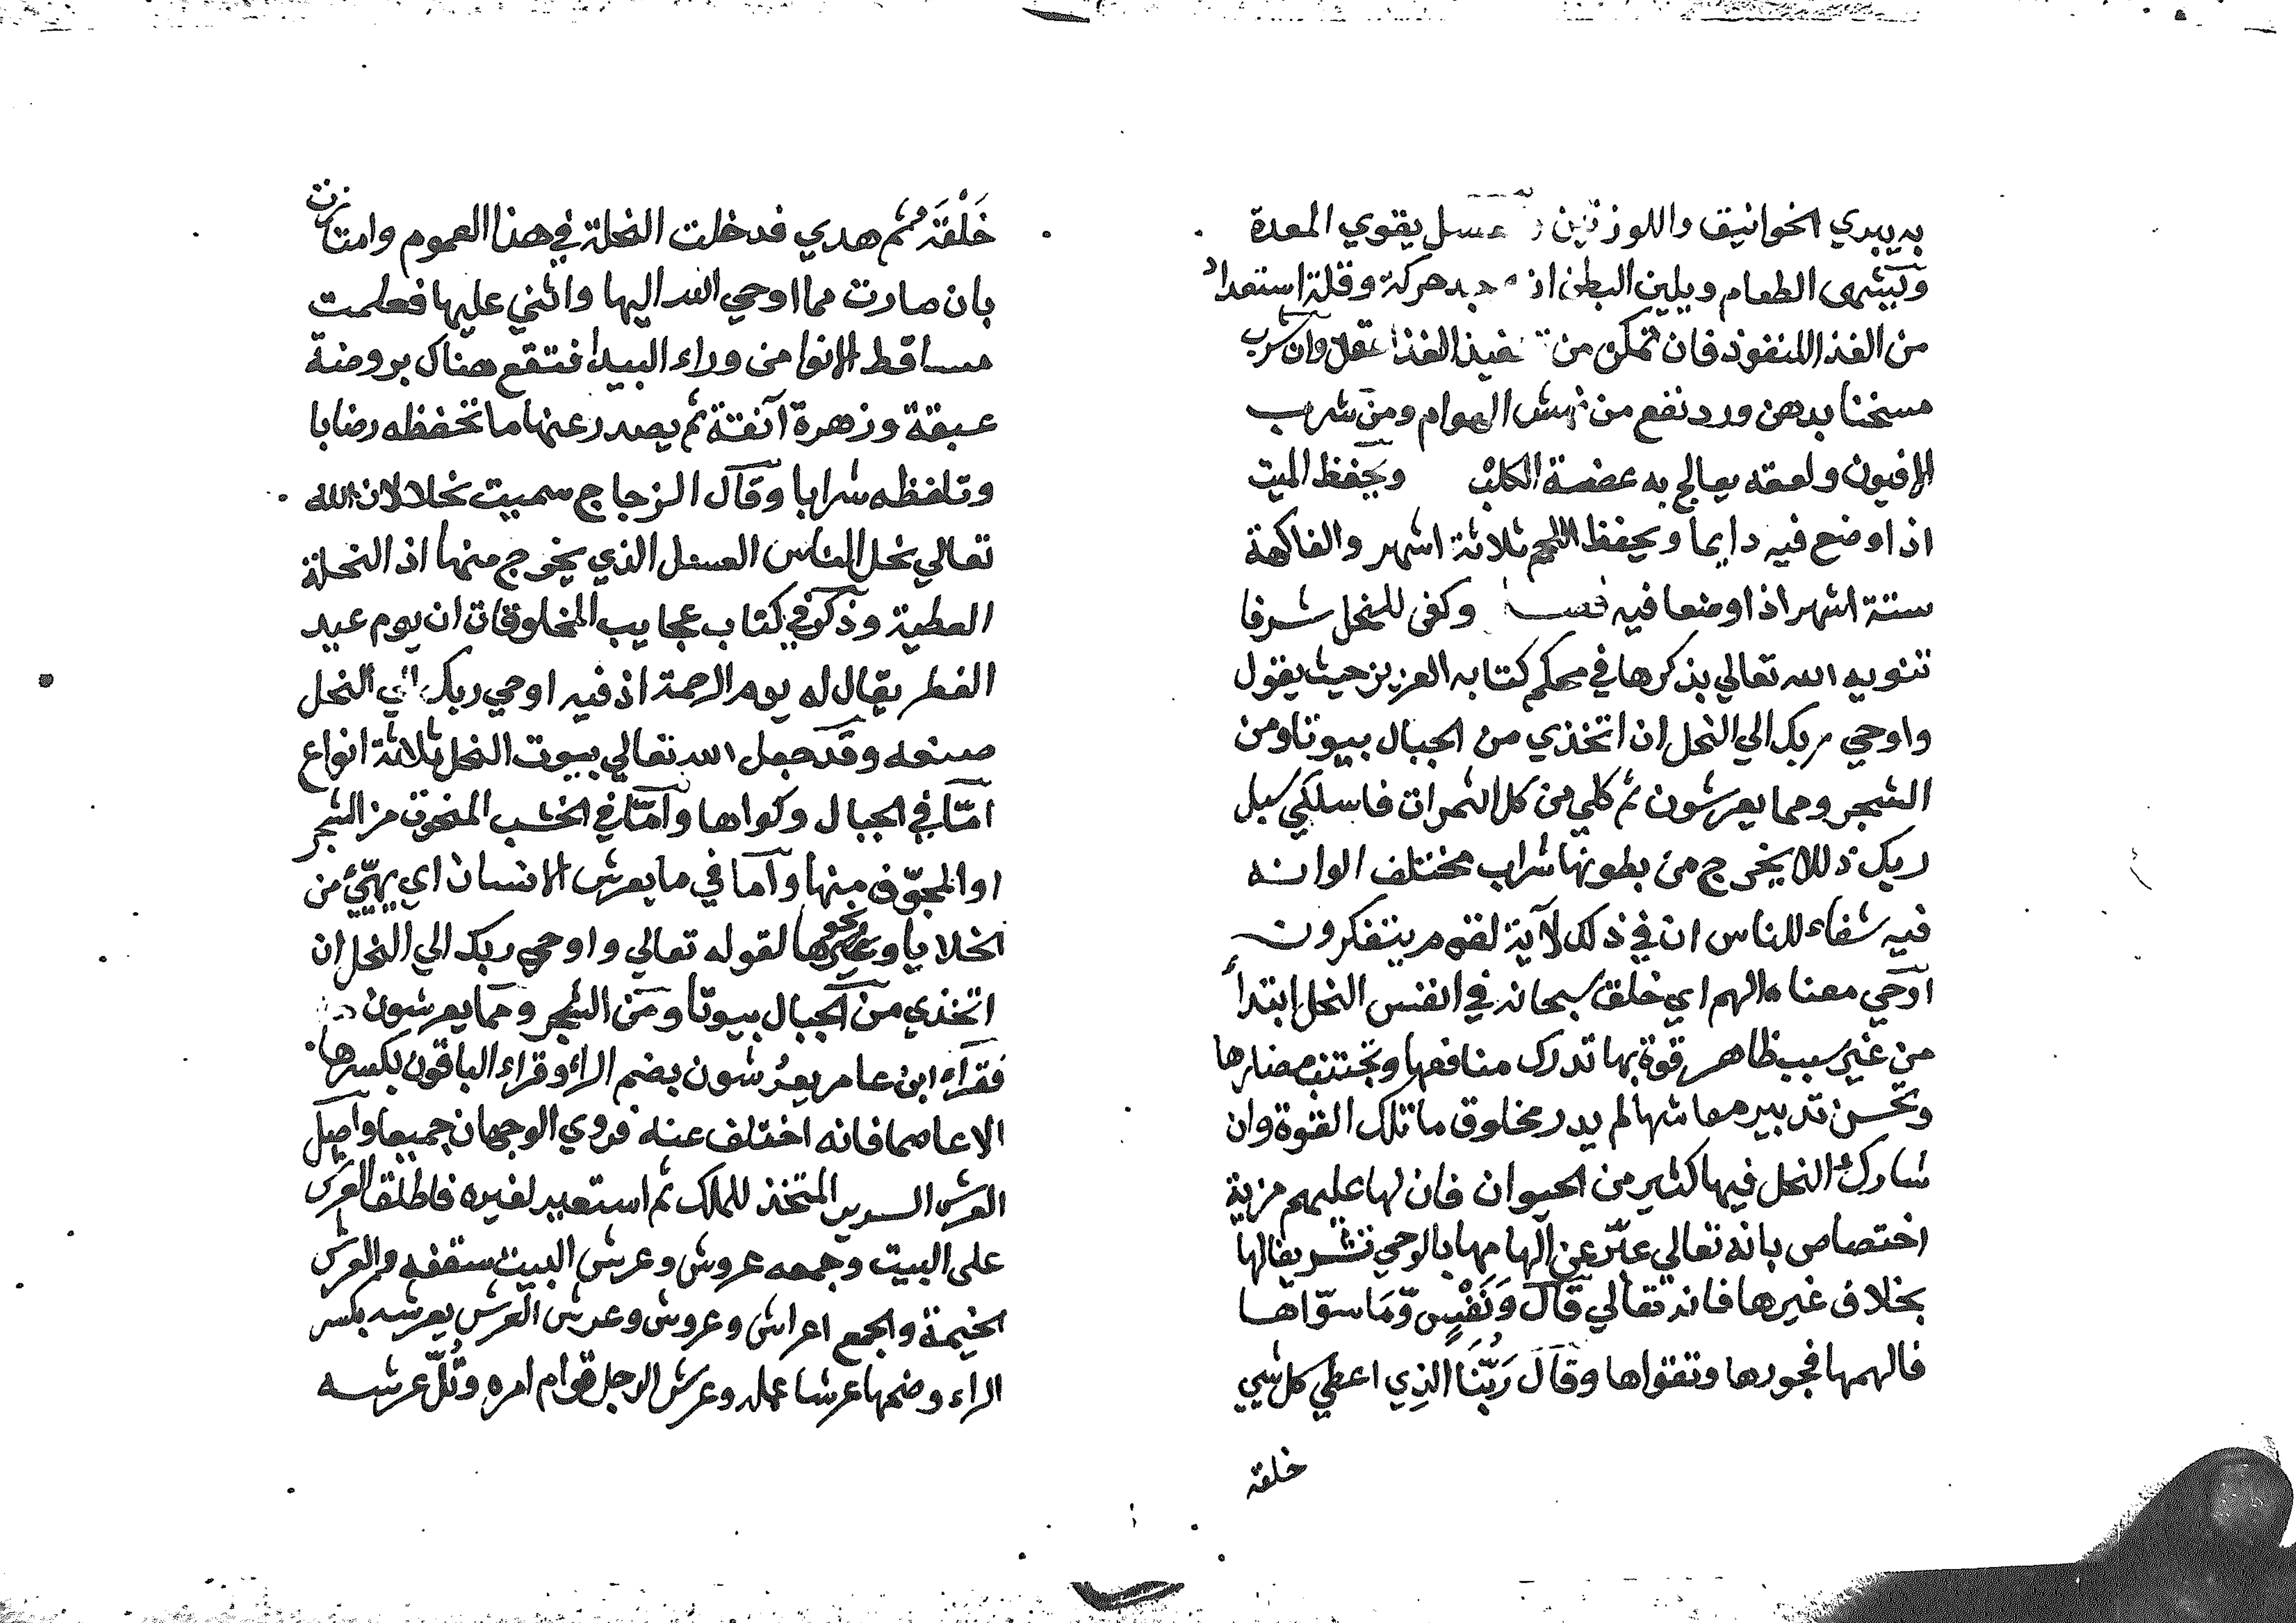 به يبري الخوانيق واللوزتين عسل يقوي المعدة
ويشهى الطعام ويلين البطن اذ حركة وقلة استعداد
من الغذا للنفوذ فان تمكن من الغذا عقل وان شرب
مسخنا بدهن ورد نفع من نهش الهوام ومن شرب
الافيون ولعقه يعالج به عضة الكلب ويحفظ الميت
اذا وضع فيه دايما ويحفظ اللحم ثلاثة اشهر والفاكهة
ستة اشهر اذا وضعا فيه وكفى للنحل شرفا
تنويه الله تعالي بذكرها في محكم كتابه العزيز حيث يقول
واوحي ربك الي النحل ان اتخذي من الجبال بيوتا ومن
الشجر ومما يعرشون ثم كلي من كل الثمرات فاسلكي سبل
ربك ذللا يخرج من بطونها شراب مختلف الوانه
فيه شفاء للناس ان في ذلك لآية لقوم يتفكرون
اوحي معناه الهم اي خلق سبحانه في انفس النحل ابتدأ
من غير سبب ظاهر قوة بها تدرك منافعها وتجتنب مضارها
وتحسن تدبير معاشها لم يدر مخلوق ما تلك القوة وان
شارك النحل فيها كثير من الحيوان فان لها عليهم مزية
اختصاص بانه تعالي عبّر عن الهامها بالوحي تشريفا لها
بخلاف غيرها فانه تعالي قال وَنَفْسٍ وّمَا سوّاها
فالهمها فجورها وتقواها وقال رَبُّنَا الذِي اعطي كل شيي
خلقه
خَلْقَهُ ثم هدي فدخلت النحلة في هذا العموم وامتازت
بان صارت مما اوحي الله اليها واثني عليها فعلمت
مساقط الانوا من وراء البيدا فتقع هناك بروضة
عبقة وزهرة آنقة ثم يصدر عنها ما تحفظه رضابا
وتلفظه شرابا وقال الزجاج سميت نحلا لان الله
تعالي نحل الناس العسل الذي يخرج منها اذ النحلة
العطية وذكر في كتاب عجايب المخلوقات ان يوم عيد
الفطر يقال له يوم الرحمة اذ فيه اوحي ربك الي النحل
صنعه وقد جعل الله تعالي بيوت النحل ثلاثة انواع
امّا في الجبال وكواها وامّا في الخشب المنحوت من الشجر
او المجوّف منها واما في ما يعرش الانسان اي يهيّئ من
الخلايا ونحوها لقوله تعالي واوحي ربك الي النحل ان
اتخذي من الجبال بيوتا ومن الشجر ومما يعرشون
فقراء ابن عامر يعرُشون بضم الراء وقراء الباقون بكسرها
الا عاصما فانه اختلف عنه فروي الوجهان جميعا واصل
العرش السرير المتخذ للملك ثم استعير لغيره فاطلق العرش
على البيت وجمعه عروش وعرش البيت سقفه والعرش
الخيمة والجمع اعراش وعروش وعرش العرش يعرشه بكسر
الراء وضمها عرشا عمله وعرش الرجل قوام امره وثُلّ عرشه